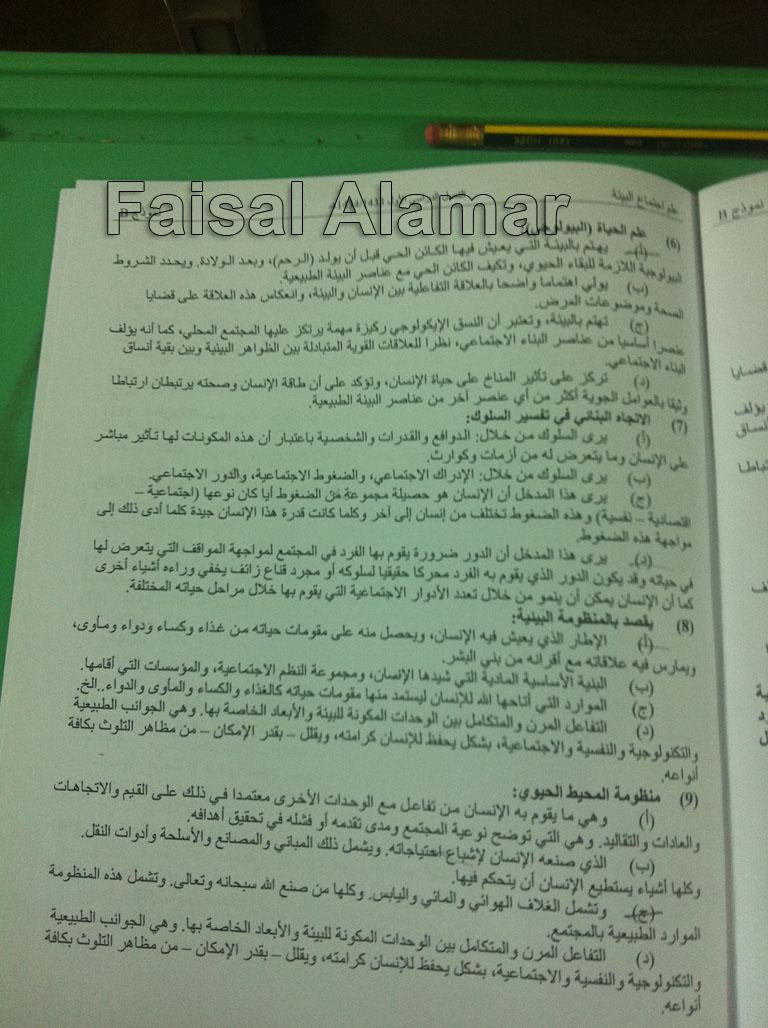 Faisal Alamar
علم اجتماع البيئة
نموذج B
(6) علم الحياة (البيولوجي):
(أ) يهتم بالبيئة التي يعيش فيها الكائن الحي قبل أن يولد (الرحم)، وبعد الولادة. ويحدد الشروط
البيولوجية اللازمة للبقاء الحيوي، وتكيف الكائن الحي مع عناصر البيئة الطبيعية.
(ب) يولي اهتماما واضحا بالعلاقة التفاعلية بين الإنسان والبيئة، وانعكاس هذه العلاقة على قضايا
الصحة وموضوعات المرض.
(ج) تهتم بالبيئة، وتعتبر أن النسق الإيكولوجي ركيزة مهمة يرتكز عليها المجتمع المحلي، كما أنه يؤلف
عنصرا أساسيا من عناصر البناء الاجتماعي، نظرا للعلاقات القوية المتبادلة بين الظواهر البيئية وبين بقية أنساق
البناء الاجتماعي.
(د) تركز على تأثير المناخ على حياة الإنسان، وتؤكد على أن طاقة الإنسان وصحته يرتبطان ارتباطا
وثيقا بالعوامل الجوية أكثر من أي عنصر آخر من عناصر البيئة الطبيعية.
(7) الاتجاه البنائي في تفسير السلوك:
(أ) يرى السلوك من خلال: الدوافع والقدرات والشخصية باعتبار أن هذه المكونات لها تأثير مباشر
على الإنسان وما يتعرض له من أزمات وكوارث.
(ب) يرى السلوك من خلال: الإدراك الاجتماعي، والضغوط الاجتماعية، والدور الاجتماعي.
(ج) يرى هذا المدخل أن الإنسان هو حصيلة مجموعة من الضغوط أيا كان نوعها (اجتماعية –
اقتصادية – نفسية) وهذه الضغوط تختلف من إنسان إلى آخر وكلما كانت قدرة هذا الإنسان جيدة كلما أدى ذلك إلى
مواجهة هذه الضغوط.
(د) يرى هذا المدخل أن الدور ضرورة يقوم بها الفرد في المجتمع لمواجهة المواقف التي يتعرض لها
في حياته وقد يكون الدور الذي يقوم به الفرد محركا حقيقيا لسلوكه أو مجرد قناع زائف يخفي وراءه أشياء أخرى
كما أن الإنسان يمكن أن ينمو من خلال تعدد الأدوار الاجتماعية التي يقوم بها خلال مراحل حياته المختلفة.
(8) يقصد بالمنظومة البيئية:
(أ) الإطار الذي يعيش فيه الإنسان، ويحصل منه على مقومات حياته من غذاء وكساء ودواء ومأوى،
ويمارس فيه علاقاته مع أقرانه من بني البشر.
(ب) البنية الأساسية المادية التي شيدها الإنسان، ومجموعة النظم الاجتماعية، والمؤسسات التي أقامها.
(ج) الموارد التي أتاحها الله للإنسان ليستمد منها مقومات حياته كالغذاء والكساء والمأوى والدواء..الخ.
(د) التفاعل المرن والمتكامل بين الوحدات المكونة للبيئة والأبعاد الخاصة بها. وهي الجوانب الطبيعية
والتكنولوجية والنفسية والاجتماعية، بشكل يحفظ للإنسان كرامته، ويقلل – بقدر الإمكان – من مظاهر التلوث بكافة
أنواعه.
(9) منظومة المحيط الحيوي:
(أ) وهي ما يقوم به الإنسان من تفاعل مع الوحدات الأخرى معتمدا في ذلك على القيم والاتجاهات
والعادات والتقاليد. وهي التي توضح نوعية المجتمع ومدى تقدمه أو فشله في تحقيق أهدافه.
(ب) الذي صنعه الإنسان لإشباع احتياجاته. ويشمل ذلك المباني والمصانع والأسلحة وأدوات النقل.
وكلها أشياء يستطيع الإنسان أن يتحكم فيها.
(ج) وتشمل الغلاف الهوائي والمائي واليابس. وكلها من صنع الله سبحانه وتعالى. وتشمل هذه المنظومة
الموارد الطبيعية بالمجتمع.
(د) التفاعل المرن والمتكامل بين الوحدات المكونة للبيئة والأبعاد الخاصة بها. وهي الجوانب الطبيعية
والتكنولوجية والنفسية والاجتماعية، بشكل يحفظ للإنسان كرامته، ويقلل – بقدر الإمكان – من مظاهر التلوث بكافة
أنواعه.
نموذج B
قضايا
يؤلف
أنساق